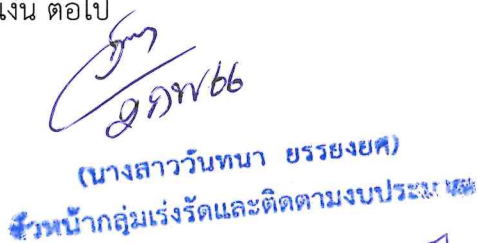 เงิน ต่อไป
2 กพ 66
(นางสาววันทนา ยรรยงยศ)
หัวหน้ากลุ่มเร่งรัดและติดตามงบประมาณ